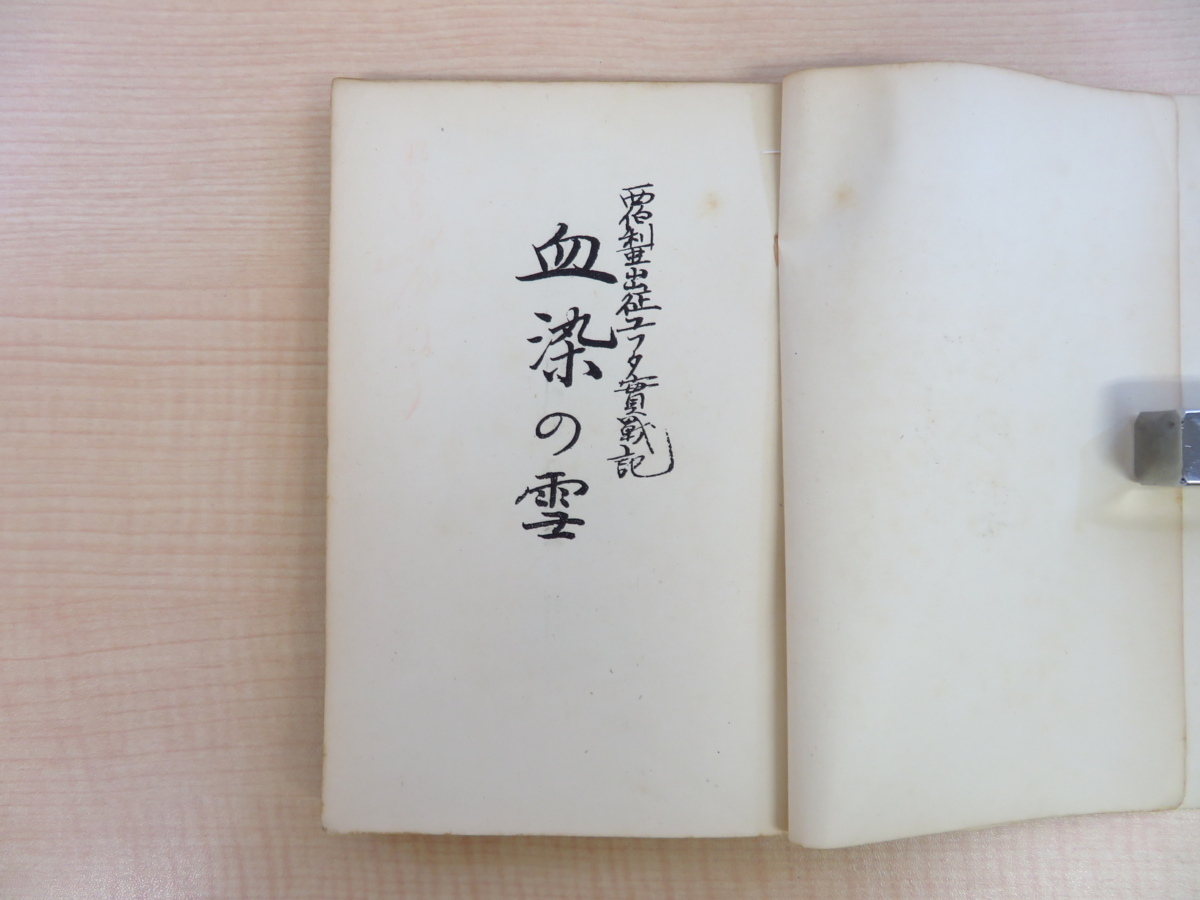 西伯利亜出征ユフタ實戰記
血染の雪